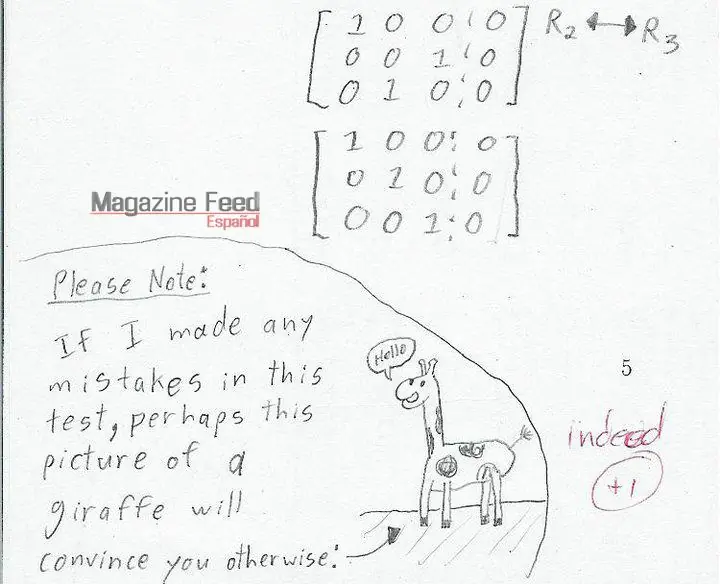 1 0 0 0 R2 ↔ R3
0 0 1 0
0 1 0 0
1 0 0 0
0 1 0 0
0 0 1 0
Magazine Feed
Español
Please Note:
If I made any
mistakes in this
test, perhaps this
picture of a
giraffe will
convince you otherwise:
Hello
5
indeed
+1